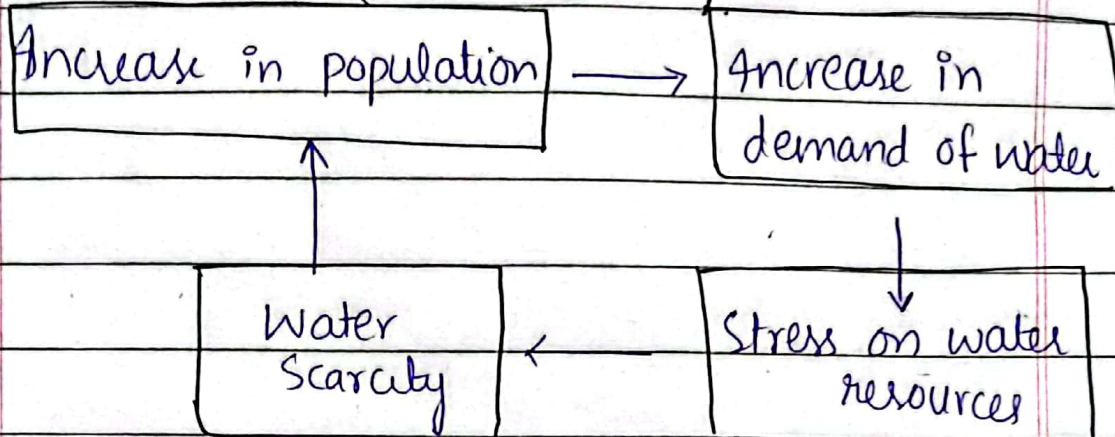 Increase in population
Increase in
demand of water
Stress on water
resources
Water
Scarcity